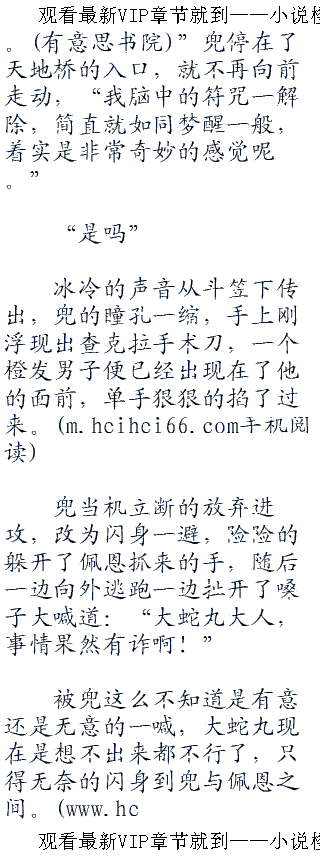 观看最新VIP章节就到——小说检
。(有意思书院)”兜停在了
天地桥的入口，就不再向前
走动，“我脑中的符咒一解
除，简直就如同梦醒一般，
着实是非常奇妙的感觉呢
。”
“是吗”
冰冷的声音从斗笠下传
出，兜的瞳孔一缩，手上刚
浮现出查克拉手术刀，一个
橙发男子便已经出现在了他
的面前，单手狠狠的掐了过
来。(m.hcihci66.com手机阅
读)
兜当机立断的放弃进
攻，改为闪身一避，险险的
躲开了佩恩抓来的手，随后
一边向外逃跑一边扯开了嗓
子大喊道：“大蛇丸大人，
事情果然有诈啊！”
被兜这么不知道是有意
还是无意的一喊，大蛇丸现
在是想不出来都不行了，只
得无奈的闪身到兜与佩恩之
间。(www.hc
观看最新VIP章节就到——小说检